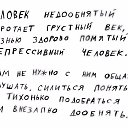 ЛОВЕК НЕДООБНЯТЫЙ
РОТАЕТ ГРУСТНЫЙ ВЕК,
ЗНЬЮ ЗДОРОВО ПОМЯТЫЙ
ЕПРЕССИВНЫЙ ЧЕЛОВЕК.
АМ НЕ НУЖНО С НИМ ОБЩА
УШАТЬ, СИЛИТЬСЯ ПОНЯТЬ
ТИХОНЬКО ПОДОБРАТЬСЯ
И ВНЕЗАПНО ДООБНЯТЬ